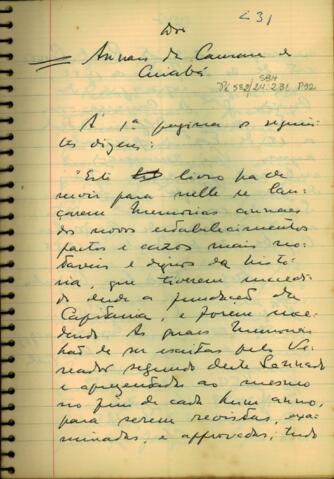 231
Dos
Annaes da Camara de
Cuiabá
SBH
Pi 582/24:231 P92
Á 1ª pagina os seguin-
tes dizeres:
"Este livro ha de
servir para nelle se lan-
çarem Memorias annaes
dos novos estabelecimentos
factos e cazos mais no-
taveis e dignos da histo-
ria, que tiverem succedi-
do desde a fundação da
Capitania, e forem suce-
dendo. As quaes Memorias
hão de ser escritas pelo Ve-
reador segundo deste Sennado
e aprezentadas ao mesmo
no fim de cada hum anno,
para serem revistas, exa-
minadas, e approvadas; tudo